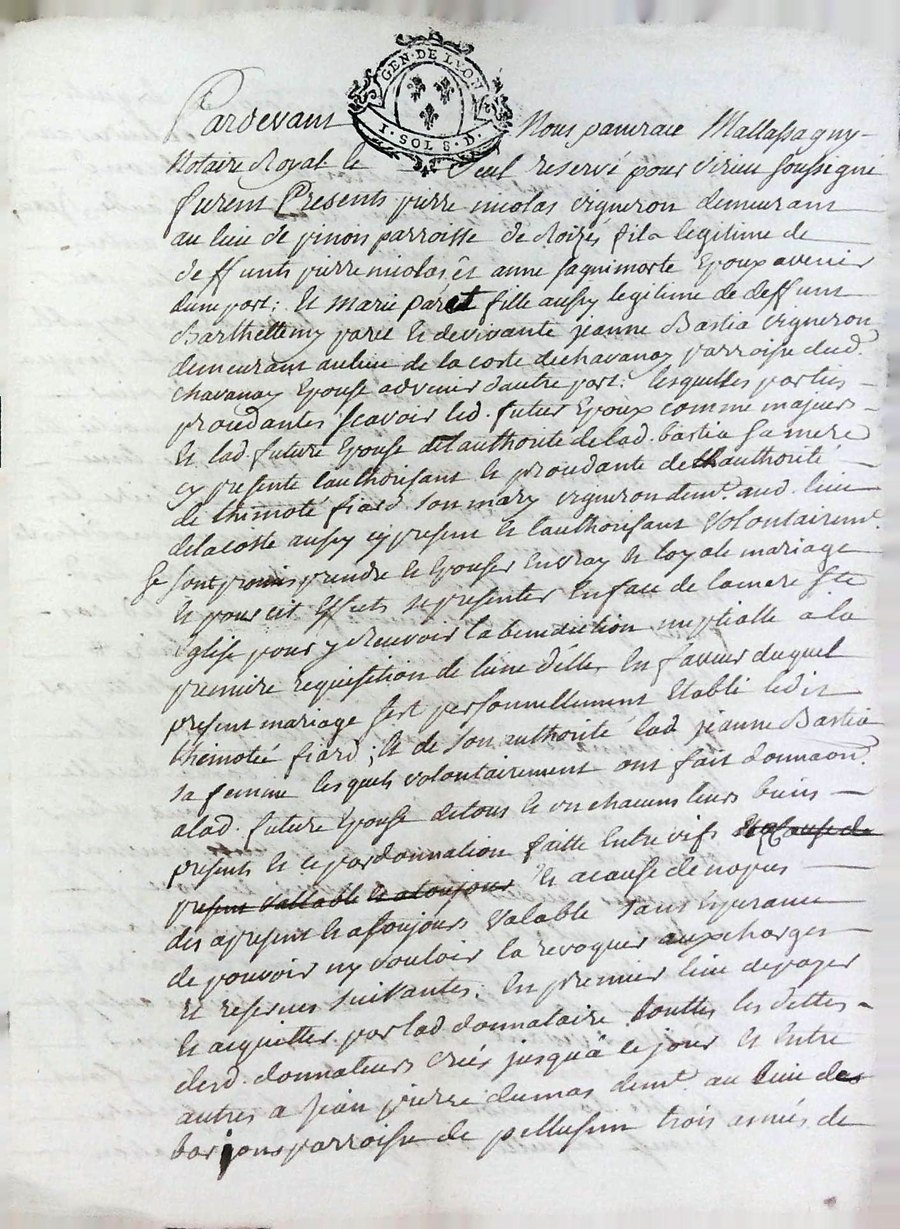 GEN · DE LYON
I · SOL S · D ·
Pardevant Nous pancrace Mallassagny
Notaire Royal le seul reservé pour virieu soussigné
furent Presents pierre nicolas vigneron demeurant
au lieu de pinon parroisse de Roizes fils legitime de
deffunts pierre nicolas et anne Epoux avenir
dune part; et marie paret fille aussy legitime de deffunt
Barthellemy paret et de vivante jeanne Bastia vigneron
demeurant au lieu de la coste de chavanay parroisse dud.
chavanay Epouse advenir d'autre part; lesquelles parties
proceddantes scavoir led. futur Epoux comme majeur
et lad. future Epouse de l'authorité de lad. bastia sa mere
cy presente l'authorisant et proceddante de l'authorité
de thimoté fiard son mary vigneron demt. aud. lieu
de la coste aussy cy present et l'authorisant volontairemt.
se sont promis prendre et Epouser en vray et loyale mariage
et pour cet effects se presenter en face de la mere Ste
Eglise pour y recevoir la benediction nuptialle a la
premiere requisition de l'une d'elles, en faveur duquel
present mariage s'est personnellement Etabli ledit
thimotée fiard; et de son authorité lad. jeanne Bastia
sa femme lesquels volontairement ont fait donnaon.
a lad. future Epouse de tous et un chacuns leurs biens
presents et ce par donnation faitte entre vifs et a cause de
present vallable et a toujours et a cause de nopces
des apresent et a toujours valable sans Esperance
de pouvoir ny vouloir la revoquer aux charges
et reserves suivantes; en premier lieu de payer
et acquitter par lad. donnataire touttes les dettes
desd. donnateurs crées jusqu'à ce jour et entre
autres a jean pierre dumas demt. au lieu des
parroisse de pellussin trois années de